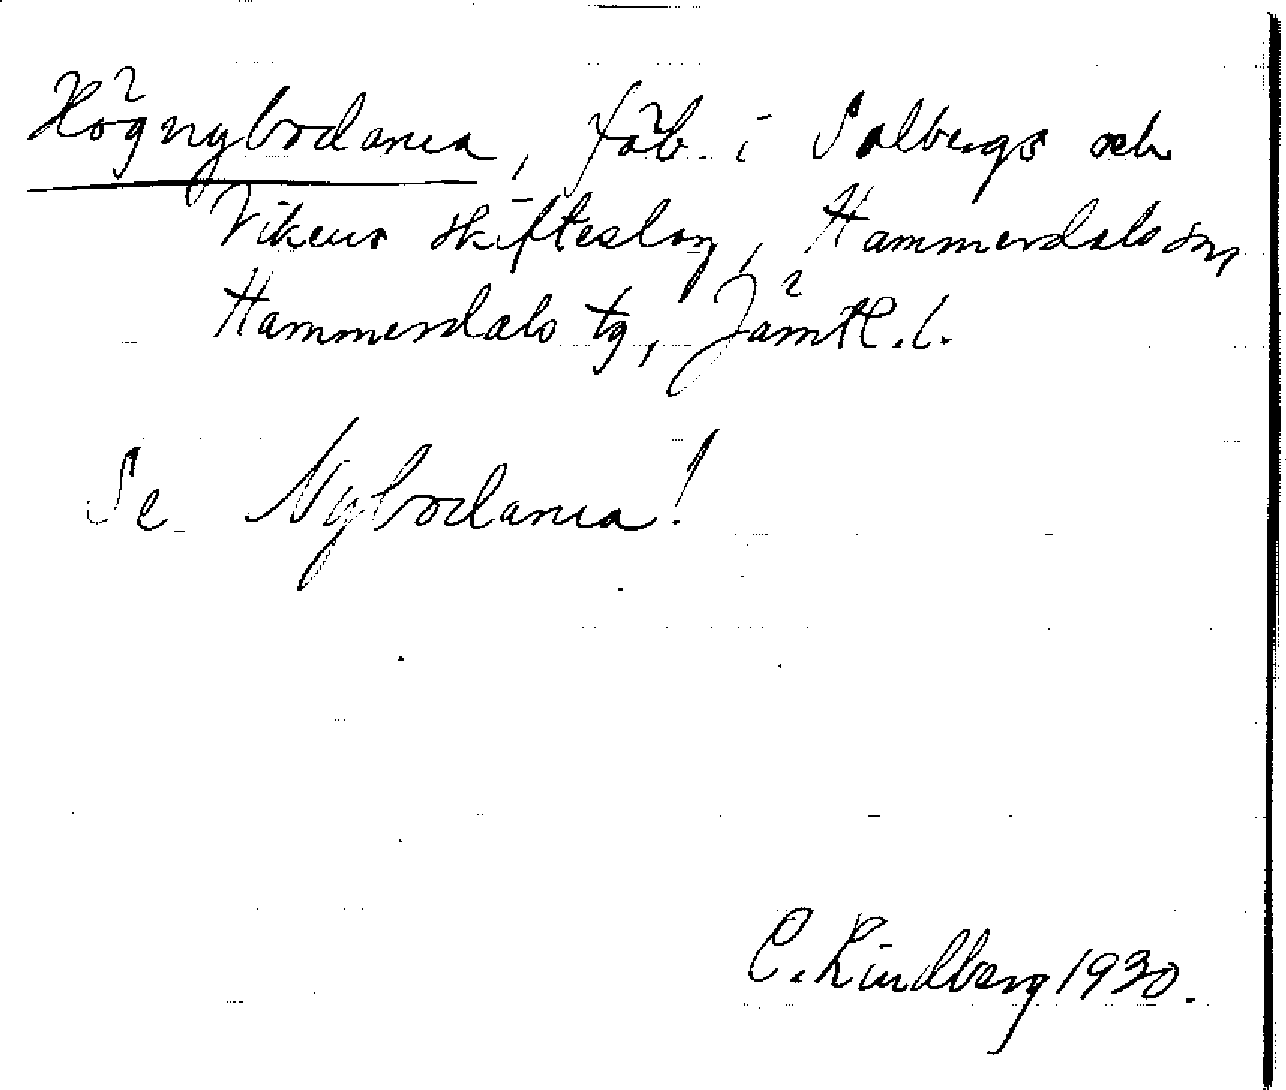 Högnybodarna, fäb. i Solbergs och
Vikens skifteslag, Hammerdals sn,
Hammerdals tg, Jämtl. l.
Se Nybodarna!
C. Lindberg 1930.